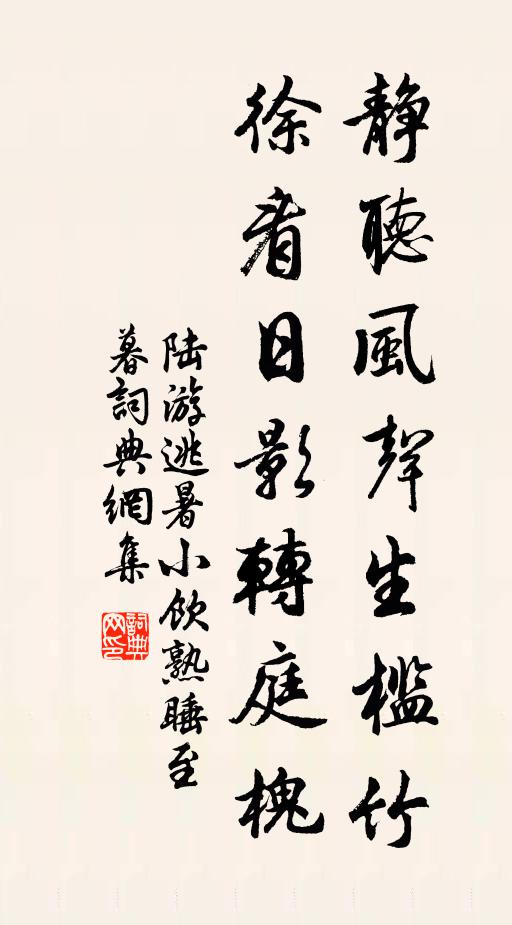 静聽風聲生檻竹
徐看日影轉庭槐
陆游逃暑小飲熟睡至
暮詞典網集
詞典
网印